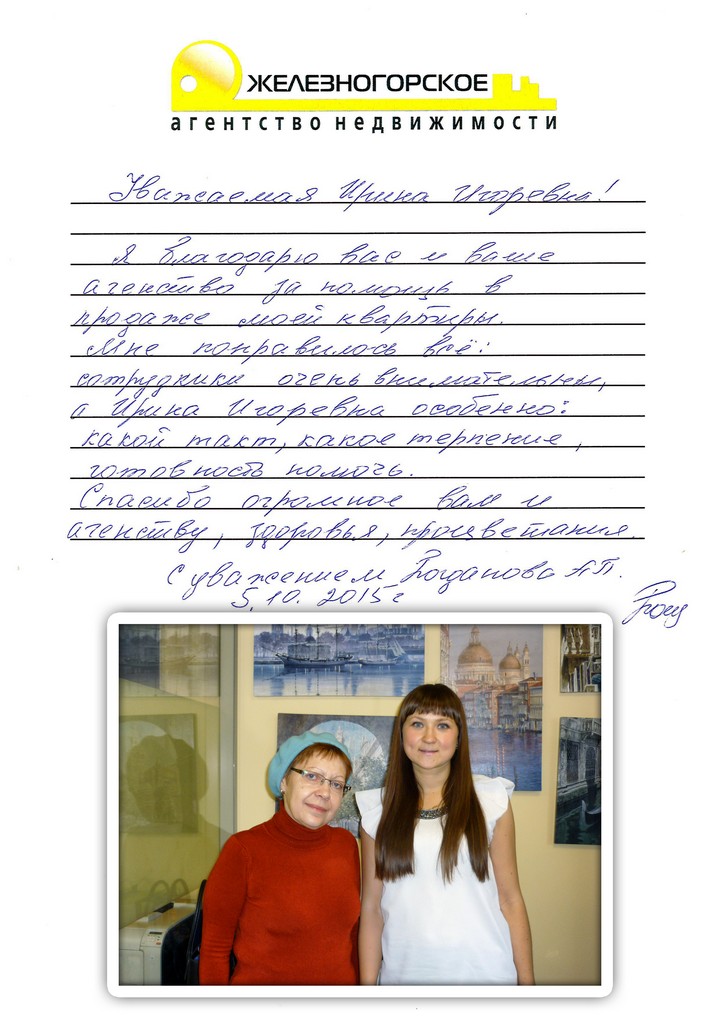 ЖЕЛЕЗНОГОРСКОЕ
агентство недвижимости
Уважаемая Ирина Игоревна!
Я благодарю вас и ваше
агенство за помощь в
продаже моей квартиры.
Мне понравилось всё:
сотрудники очень внимательны,
а Ирина Игоревна особенно:
какой такт, какое терпение,
готовность помочь.
Спасибо огромное вам и
агенству, здоровья, процветания.
С уважением Богданова А.П.
5.10. 2015г